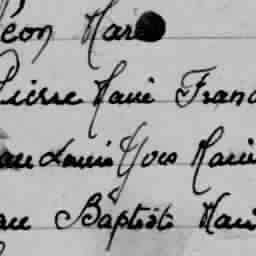 éon Marie
Pierre Marie Franc
ean Louis Yves Marie
ean Baptiste Mari